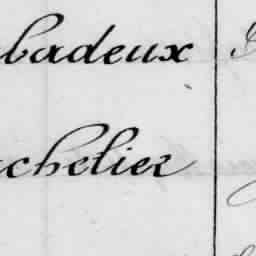 badeux
chelier